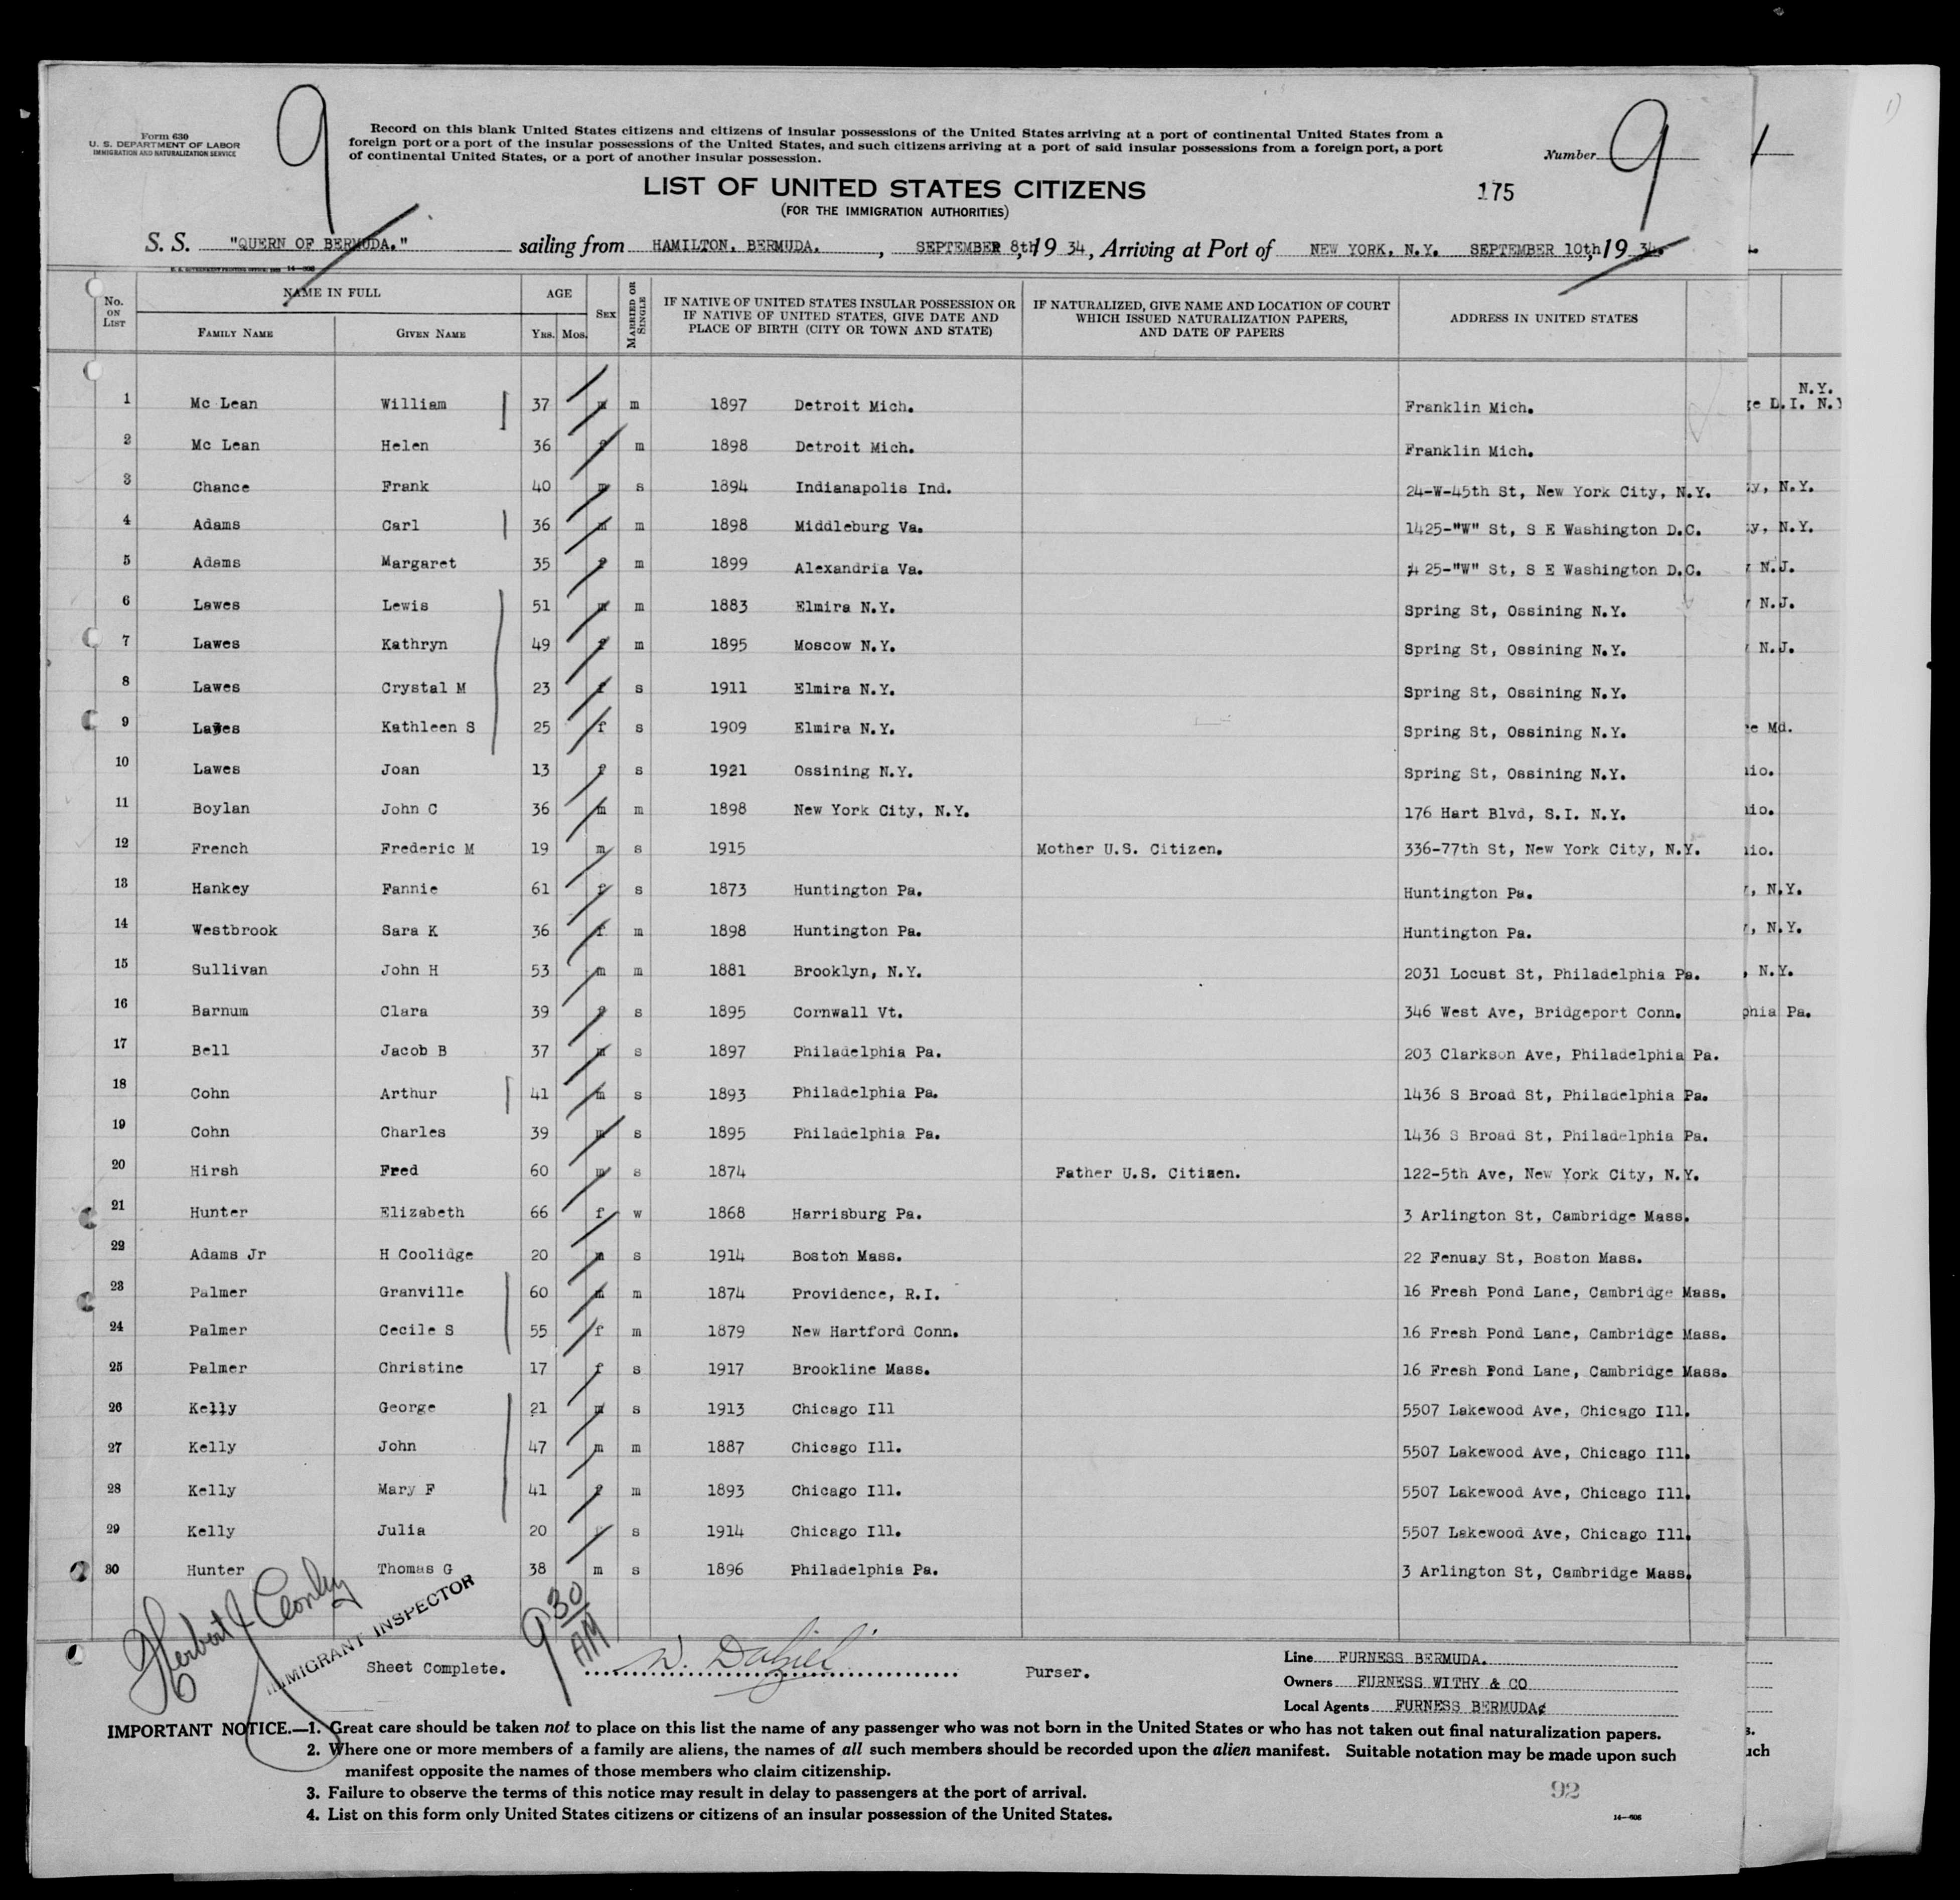 9
9
Form 630
U. S. DEPARTMENT OF LABOR
IMMIGRATION AND NATURALIZATION SERVICE
Record on this blank United States citizens and citizens of insular possessions of the United States arriving at a port of continental United States from a
foreign port or a port of the insular possessions of the United States, and such citizens arriving at a port of said insular possessions from a foreign port, a port
of continental United States, or a port of another insular possession.
Number
LIST OF UNITED STATES CITIZENS
175
(FOR THE IMMIGRATION AUTHORITIES)
S. S. "QUERN OF BERMUDA." sailing from HAMILTON, BERMUDA. , SEPTEMBER 8th, 19 34, Arriving at Port of NEW YORK, N.Y. SEPTEMBER 10th, 19 34.
No. ON LIST NAME IN FULL AGE SEX MARRIED OR SINGLE IF NATIVE OF UNITED STATES INSULAR POSSESSION OR IF NATIVE OF UNITED STATES, GIVE DATE AND PLACE OF BIRTH (CITY OR TOWN AND STATE) IF NATURALIZED, GIVE NAME AND LOCATION OF COURT WHICH ISSUED NATURALIZATION PAPERS, AND DATE OF PAPERS ADDRESS IN UNITED STATES
FAMILY NAME GIVEN NAME YRS. MOS.
1 Mc Lean William 37 m m 1897 Detroit Mich. Franklin Mich.
2 Mc Lean Helen 36 f m 1898 Detroit Mich. Franklin Mich.
3 Chance Frank 40 m s 1894 Indianapolis Ind. 24-W-45th St, New York City, N.Y.
4 Adams Carl 36 m m 1898 Middleburg Va. 1425-"W" St, S E Washington D.C.
5 Adams Margaret 35 f m 1899 Alexandria Va. 1425-"W" St, S E Washington D.C.
6 Lawes Lewis 51 m m 1883 Elmira N.Y. Spring St, Ossining N.Y.
7 Lawes Kathryn 49 f m 1895 Moscow N.Y. Spring St, Ossining N.Y.
8 Lawes Crystal M 23 f s 1911 Elmira N.Y. Spring St, Ossining N.Y.
9 Lawes Kathleen S 25 f s 1909 Elmira N.Y. Spring St, Ossining N.Y.
10 Lawes Joan 13 f s 1921 Ossining N.Y. Spring St, Ossining N.Y.
11 Boylan John C 36 m m 1898 New York City, N.Y. 176 Hart Blvd, S.I. N.Y.
12 French Frederic M 19 m s 1915 Mother U.S. Citizen. 336-77th St, New York City, N.Y.
13 Hankey Fannie 61 f s 1873 Huntington Pa. Huntington Pa.
14 Westbrook Sara K 36 f m 1898 Huntington Pa. Huntington Pa.
15 Sullivan John H 53 m m 1881 Brooklyn, N.Y. 2031 Locust St, Philadelphia Pa.
16 Barnum Clara 39 f s 1895 Cornwall Vt. 346 West Ave, Bridgeport Conn.
17 Bell Jacob B 37 m s 1897 Philadelphia Pa. 203 Clarkson Ave, Philadelphia Pa.
18 Cohn Arthur 41 m s 1893 Philadelphia Pa. 1436 S Broad St, Philadelphia Pa.
19 Cohn Charles 39 m s 1895 Philadelphia Pa. 1436 S Broad St, Philadelphia Pa.
20 Hirsh Fred 60 m s 1874 Father U.S. Citizen. 122-5th Ave, New York City, N.Y.
21 Hunter Elizabeth 66 f w 1868 Harrisburg Pa. 3 Arlington St, Cambridge Mass.
22 Adams Jr H Coolidge 20 m s 1914 Boston Mass. 22 Fenuay St, Boston Mass.
23 Palmer Granville 60 m m 1874 Providence, R.I. 16 Fresh Pond Lane, Cambridge Mass.
24 Palmer Cecile S 55 f m 1879 New Hartford Conn. 16 Fresh Pond Lane, Cambridge Mass.
25 Palmer Christine 17 f s 1917 Brookline Mass. 16 Fresh Pond Lane, Cambridge Mass.
26 Kelly George 21 m s 1913 Chicago Ill 5507 Lakewood Ave, Chicago Ill.
27 Kelly John 47 m m 1887 Chicago Ill. 5507 Lakewood Ave, Chicago Ill.
28 Kelly Mary F 41 f m 1893 Chicago Ill. 5507 Lakewood Ave, Chicago Ill.
29 Kelly Julia 20 s 1914 Chicago Ill. 5507 Lakewood Ave, Chicago Ill.
30 Hunter Thomas G 38 m s 1896 Philadelphia Pa. 3 Arlington St, Cambridge Mass.
Herbert
IMMIGRANT INSPECTOR
9 30 AM
Sheet Complete.
W. Dalziel
Purser.
Line FURNESS BERMUDA.
Owners FURNESS WITHY & CO
Local Agents FURNESS BERMUDA
IMPORTANT NOTICE.—1. Great care should be taken not to place on this list the name of any passenger who was not born in the United States or who has not taken out final naturalization papers.
2. Where one or more members of a family are aliens, the names of all such members should be recorded upon the alien manifest. Suitable notation may be made upon such
manifest opposite the names of those members who claim citizenship.
3. Failure to observe the terms of this notice may result in delay to passengers at the port of arrival.
4. List on this form only United States citizens or citizens of an insular possession of the United States.
92
14—608